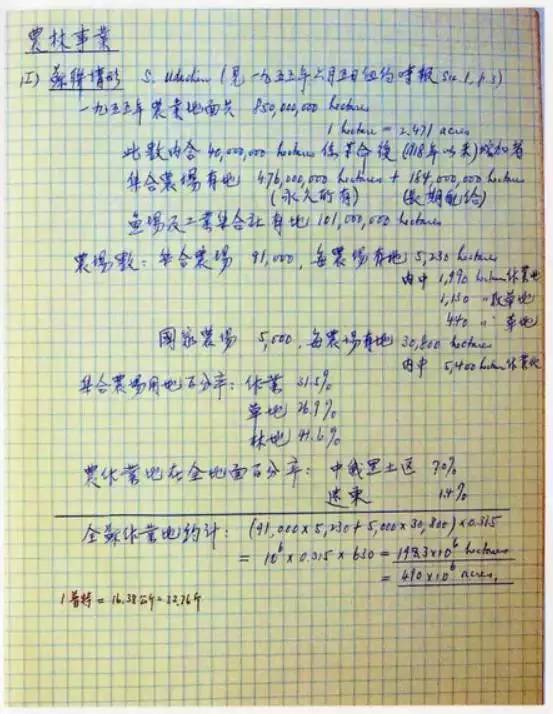 農林事業
(I) 蘇聯情形 S. (見一九五五年六月五日紐約時報 Sec. 1, p. 3)
一九五五年農業地面共 850,000,000 hectares
1 hectare = 2.471 acres
此數內含 40,000,000 hectares 係革命後 (1918年以來) 增加者
集合農場有地 476,000,000 hectares + 184,000,000 hectares
(永久所有) (長期配給)
漁場及工業集合社有地 101,000,000 hectares
農場數: 集合農場 91,000, 每農場有地 5,230 hectares
內中 1,990 hectares 作業地
1,150 " 牧草地
440 " 草地
國家農場 5,000, 每農場有地 30,800 hectares
內中 5,400 hectares 作業地
集合農場用地百分率: 作業 31.5%
草地 26.9%
林地 41.6%
農作業地在全地面百分率: 中俄黑土區 70%
遠東 1.4%
全蘇作業地約計: (91,000 x 5,230 + 5,000 x 30,800) x 0.315
= 10⁶ x 0.315 x 630 = 198.3 x 10⁶ hectares
= 490 x 10⁶ acres.
1 普特 = 16.38 公斤 = 32.76 斤